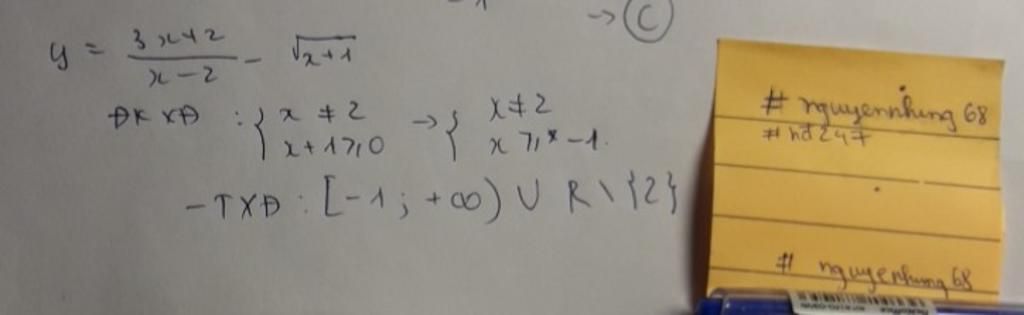 → (C)
y = \frac{3x+2}{x-2} - \sqrt{x+1}
ĐKXĐ : { x ≠ 2 → { x ≠ 2
x+1 ≥ 0 x ≥ -1.
- TXĐ : [-1; +∞) ∪ R \ {2}
# nguyennhung 68
# hd247
# nguyenhung 68